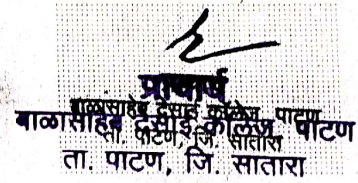 प्राचार्य
बाळासाहेब देसाई कॉलेज, पाटण
ता. पाटण, जि. सातारा
बाळासाहेब देसाई कॉलेज, पाटण
ता. पाटण, जि. सातारा